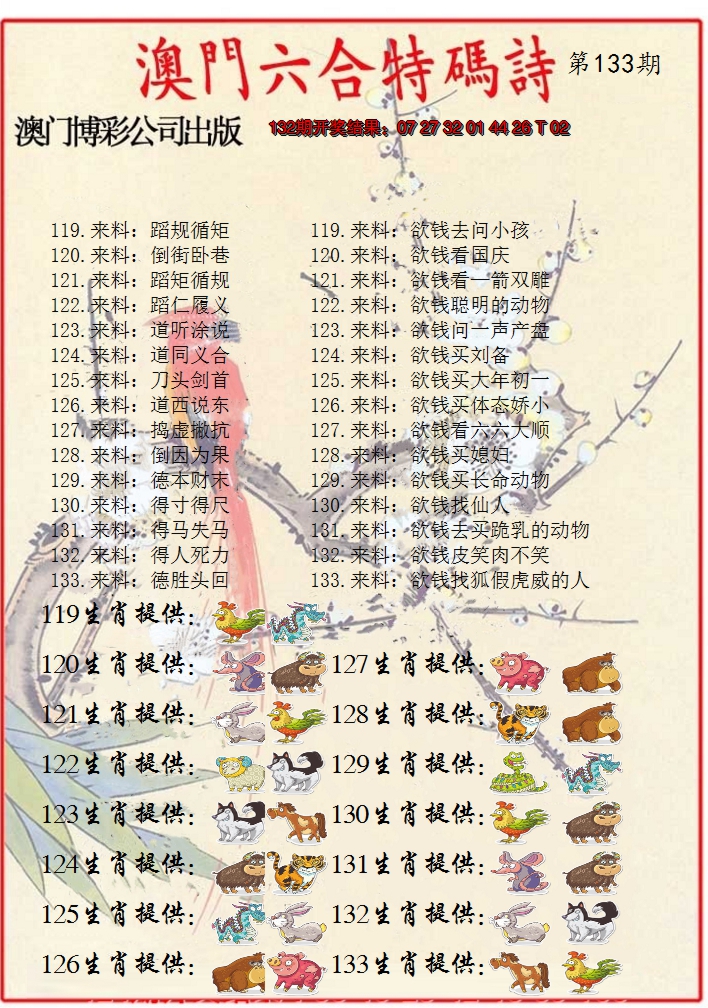 澳門六合特碼詩 第133期
澳门博彩公司出版 132期开奖结果：07 27 32 01 44 26 T 02
119.来料：蹈规循矩 119.来料：欲钱去问小孩
120.来料：倒街卧巷 120.来料：欲钱看国庆
121.来料：蹈矩循规 121.来料：欲钱看一箭双雕
122.来料：蹈仁履义 122.来料：欲钱聪明的动物
123.来料：道听涂说 123.来料：欲钱问一声产盘
124.来料：道同义合 124.来料：欲钱买刘备
125.来料：刀头剑首 125.来料：欲钱买大年初一
126.来料：道西说东 126.来料：欲钱买体态娇小
127.来料：捣虚撇抗 127.来料：欲钱看六六大顺
128.来料：倒因为果 128.来料：欲钱买媳妇
129.来料：德本财末 129.来料：欲钱买长命动物
130.来料：得寸得尺 130.来料：欲钱找仙人
131.来料：得马失马 131.来料：欲钱去买跪乳的动物
132.来料：得人死力 132.来料：欲钱皮笑肉不笑
133.来料：德胜头回 133.来料：欲钱找狐假虎威的人
119生肖提供：
120生肖提供： 127生肖提供：
121生肖提供： 128生肖提供：
122生肖提供： 129生肖提供：
123生肖提供： 130生肖提供：
124生肖提供： 131生肖提供：
125生肖提供： 132生肖提供：
126生肖提供： 133生肖提供：